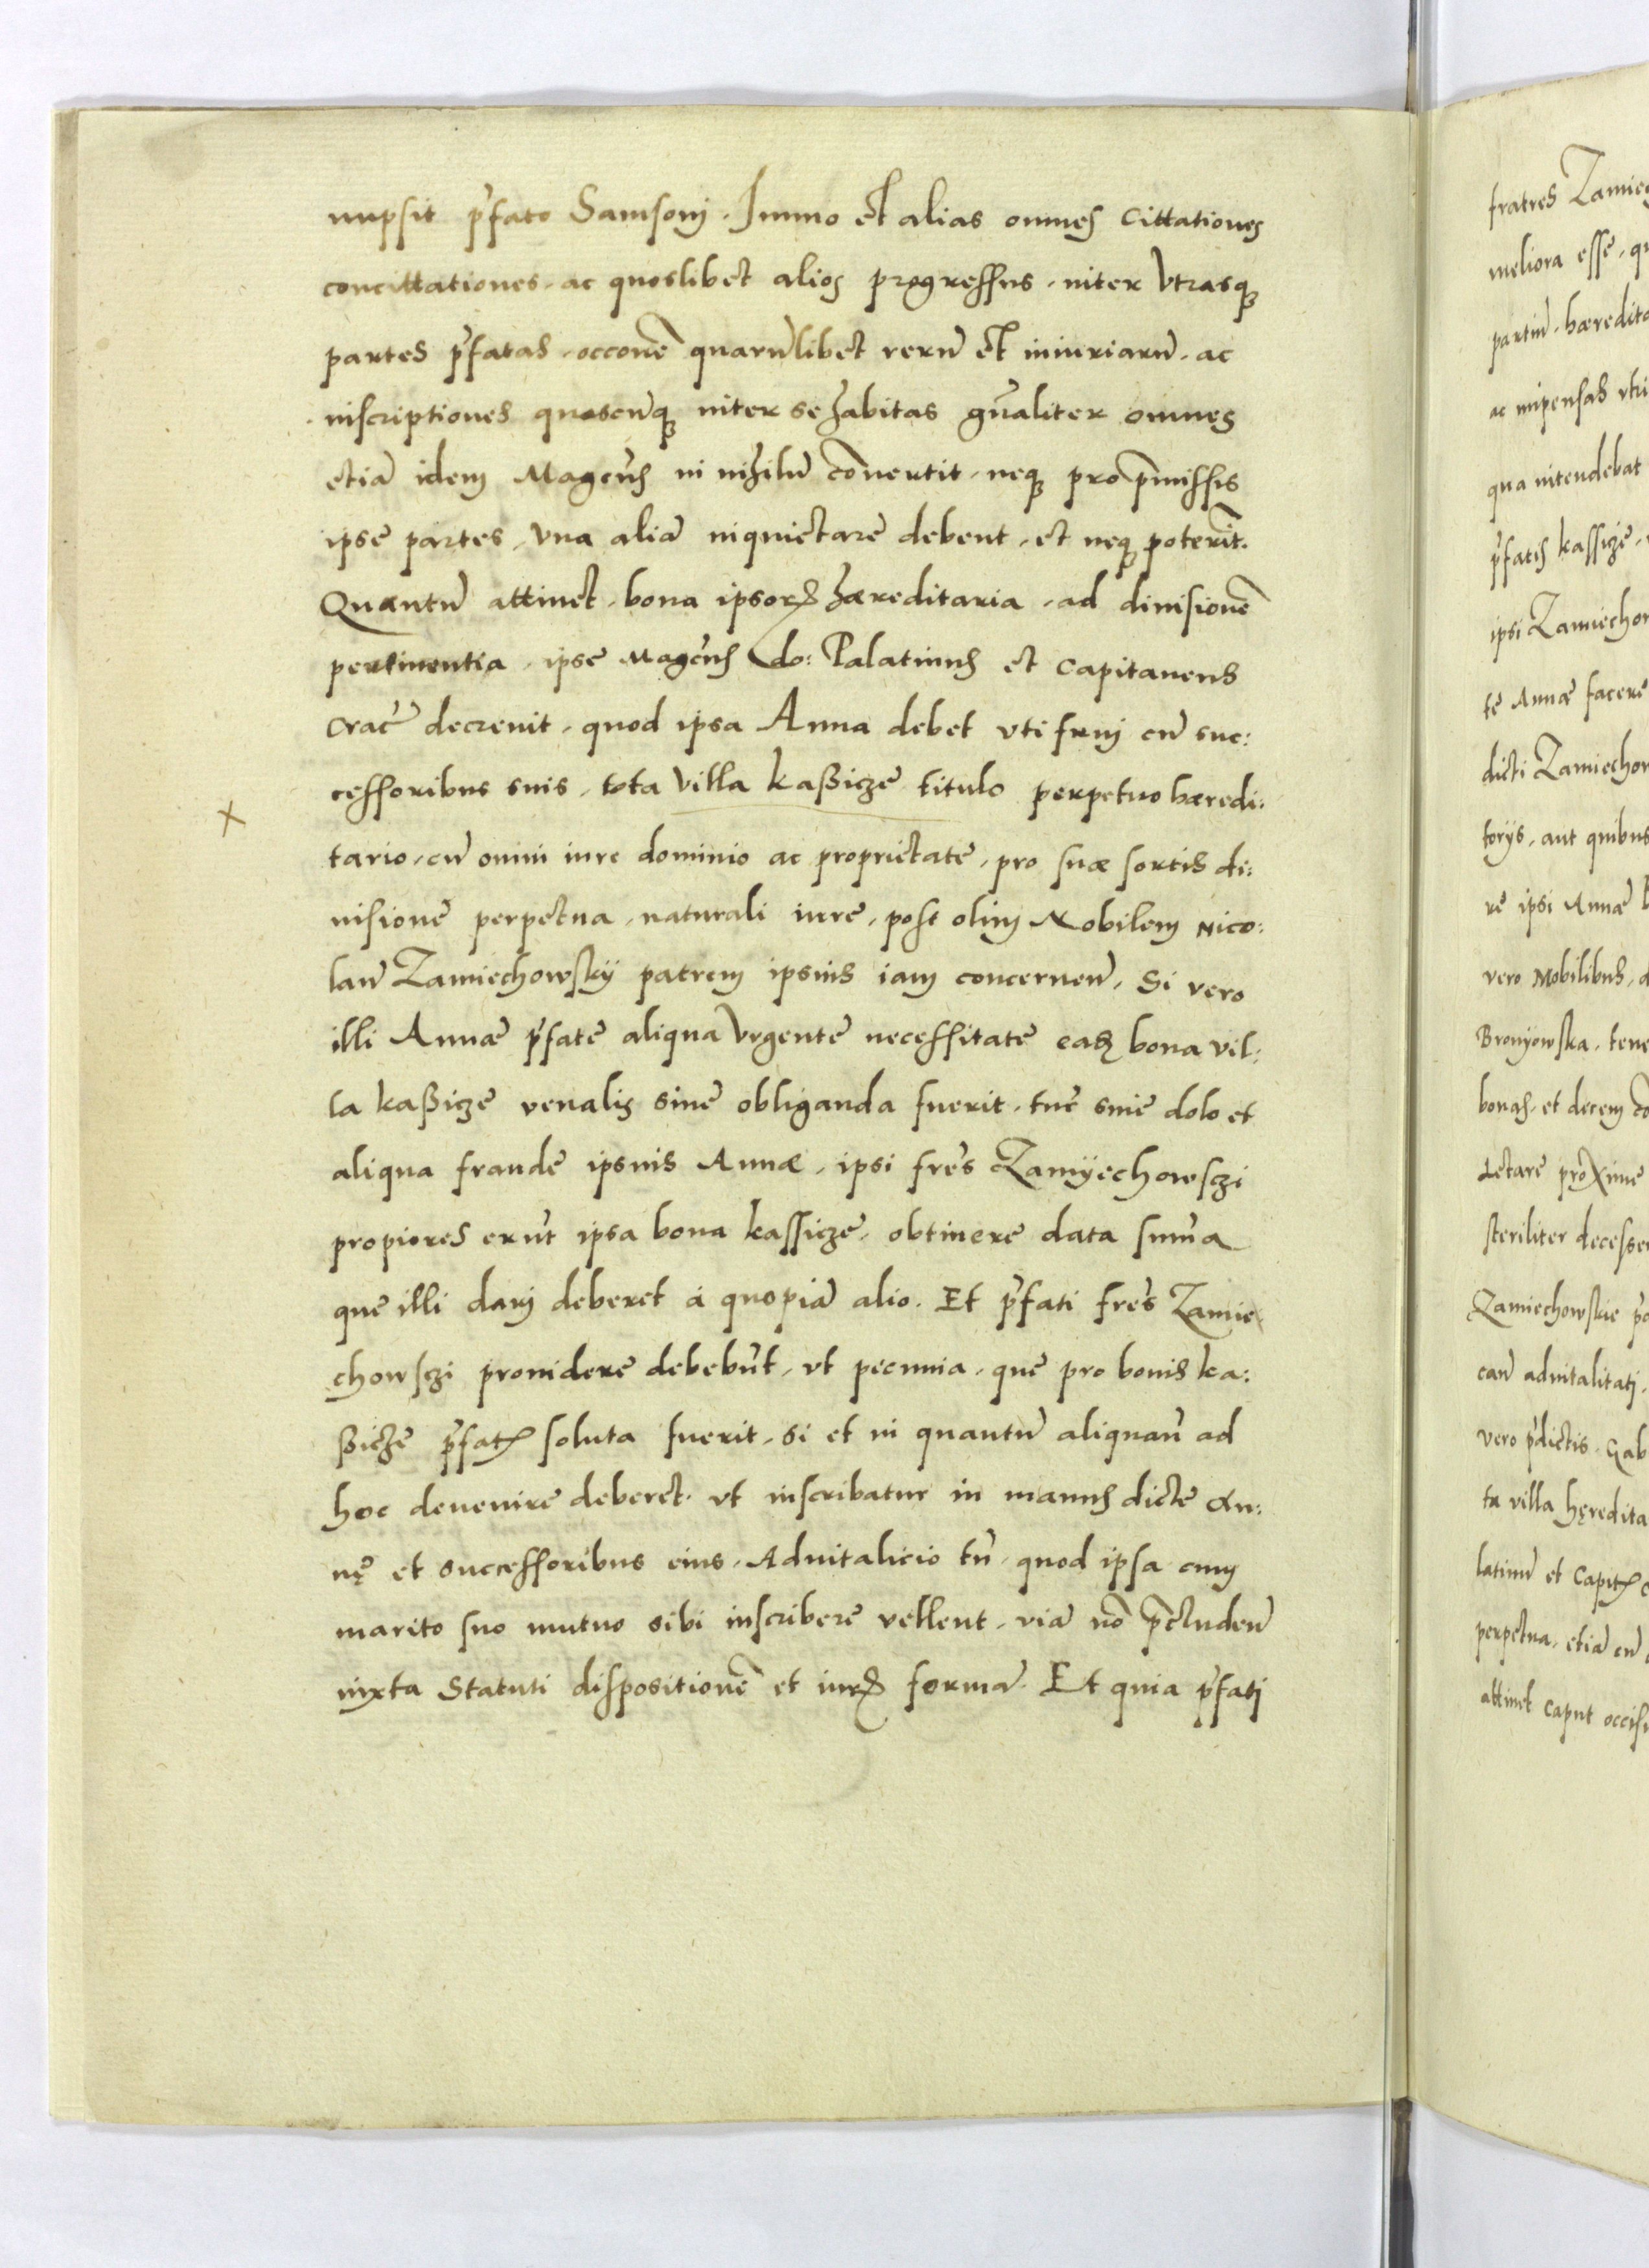 nupsit p̃fato Samsonj. Immo et alias omnes Cittationes
concittationes. ac quoslibet alios progressus. inter vtrasq3
partes p̃fatas. occone͂ quarũlibet rerũ et iniuriarũ. ac
inscriptiones quascũq3 inter se habitas gñaliter omnes
etiã idem Magcũs in nihilũ cõuertit. neq3 pro p̃missis
ipse partes. vna aliã inquietare debent. et neq3 poterĩt.
Quantũ attinet. bona ipsorꝝ hæreditaria. ad diuisionẽ
pertinentia. ipse Magcũs do: Palatinus et Capitaneus
Crac̃ decreuit. quod ipsa Anna debet vti fruj cũ suc:
cessoribus suis. tota villa kaßicze titulo perpetuo hæredi:
tario. cũ omni iure dominio ac proprietate. pro suæ sortis di:
uisione perpetua. naturali iure. post olim Nobilem Nico:
laũ Zamiechowskÿ patrem ipsius iam concernen̄. Si vero
illi Annæ p̃fate aliqua vrgente necessitate eadꝫ bona vil:
la kaßicze venalis siue obliganda fuerit. tũc sine dolo et
aliqua fraude ipsius Annæ. ipsi fr̃es Zamÿechowsczi
propiores erũt ipsa bona kassicze. obtinere data sum̃a
que illi darj deberet á quopiã alio. Et p̃fati fr̃es Zamie
chowsczi prouidere debebũt. vt pecunia. que pro bonis ka:
ßicze p̃fatꝭ soluta fuerit. si et in quantũ aliquañ ad
hoc deuenire deberet. vt inscribatur in manus dicte An:
nę et successoribus eius. Aduitalicio tñ. quod ipsa cum
marito suo mutuo sibi inscribere vellent. viã nõ p̃cluden̄
iuxta Statuti dispositionẽ et iurꝭ formã. Et quia p̃fatj
fratres
meliora esse. qu
partiũ. hæredita
ac impensas vtri
qua intendebat
p̃fatis kassicze.
ipsi Zamiechow
te Annæ facere
dicti Zamiechow
torÿs. aut quibus
re ipsi Annæ
vero Mobilibus.
Bronÿowska. tene
bonas. et decem
Lętare proxime
steriliter decesse
Zamiechowskie
can̄ aduitalitatj.
vero p̃dictis. Gab
ta villa hęredita
latinũ et Capitꝭ
perpetua. etiã cũ
attinet Caput occisi